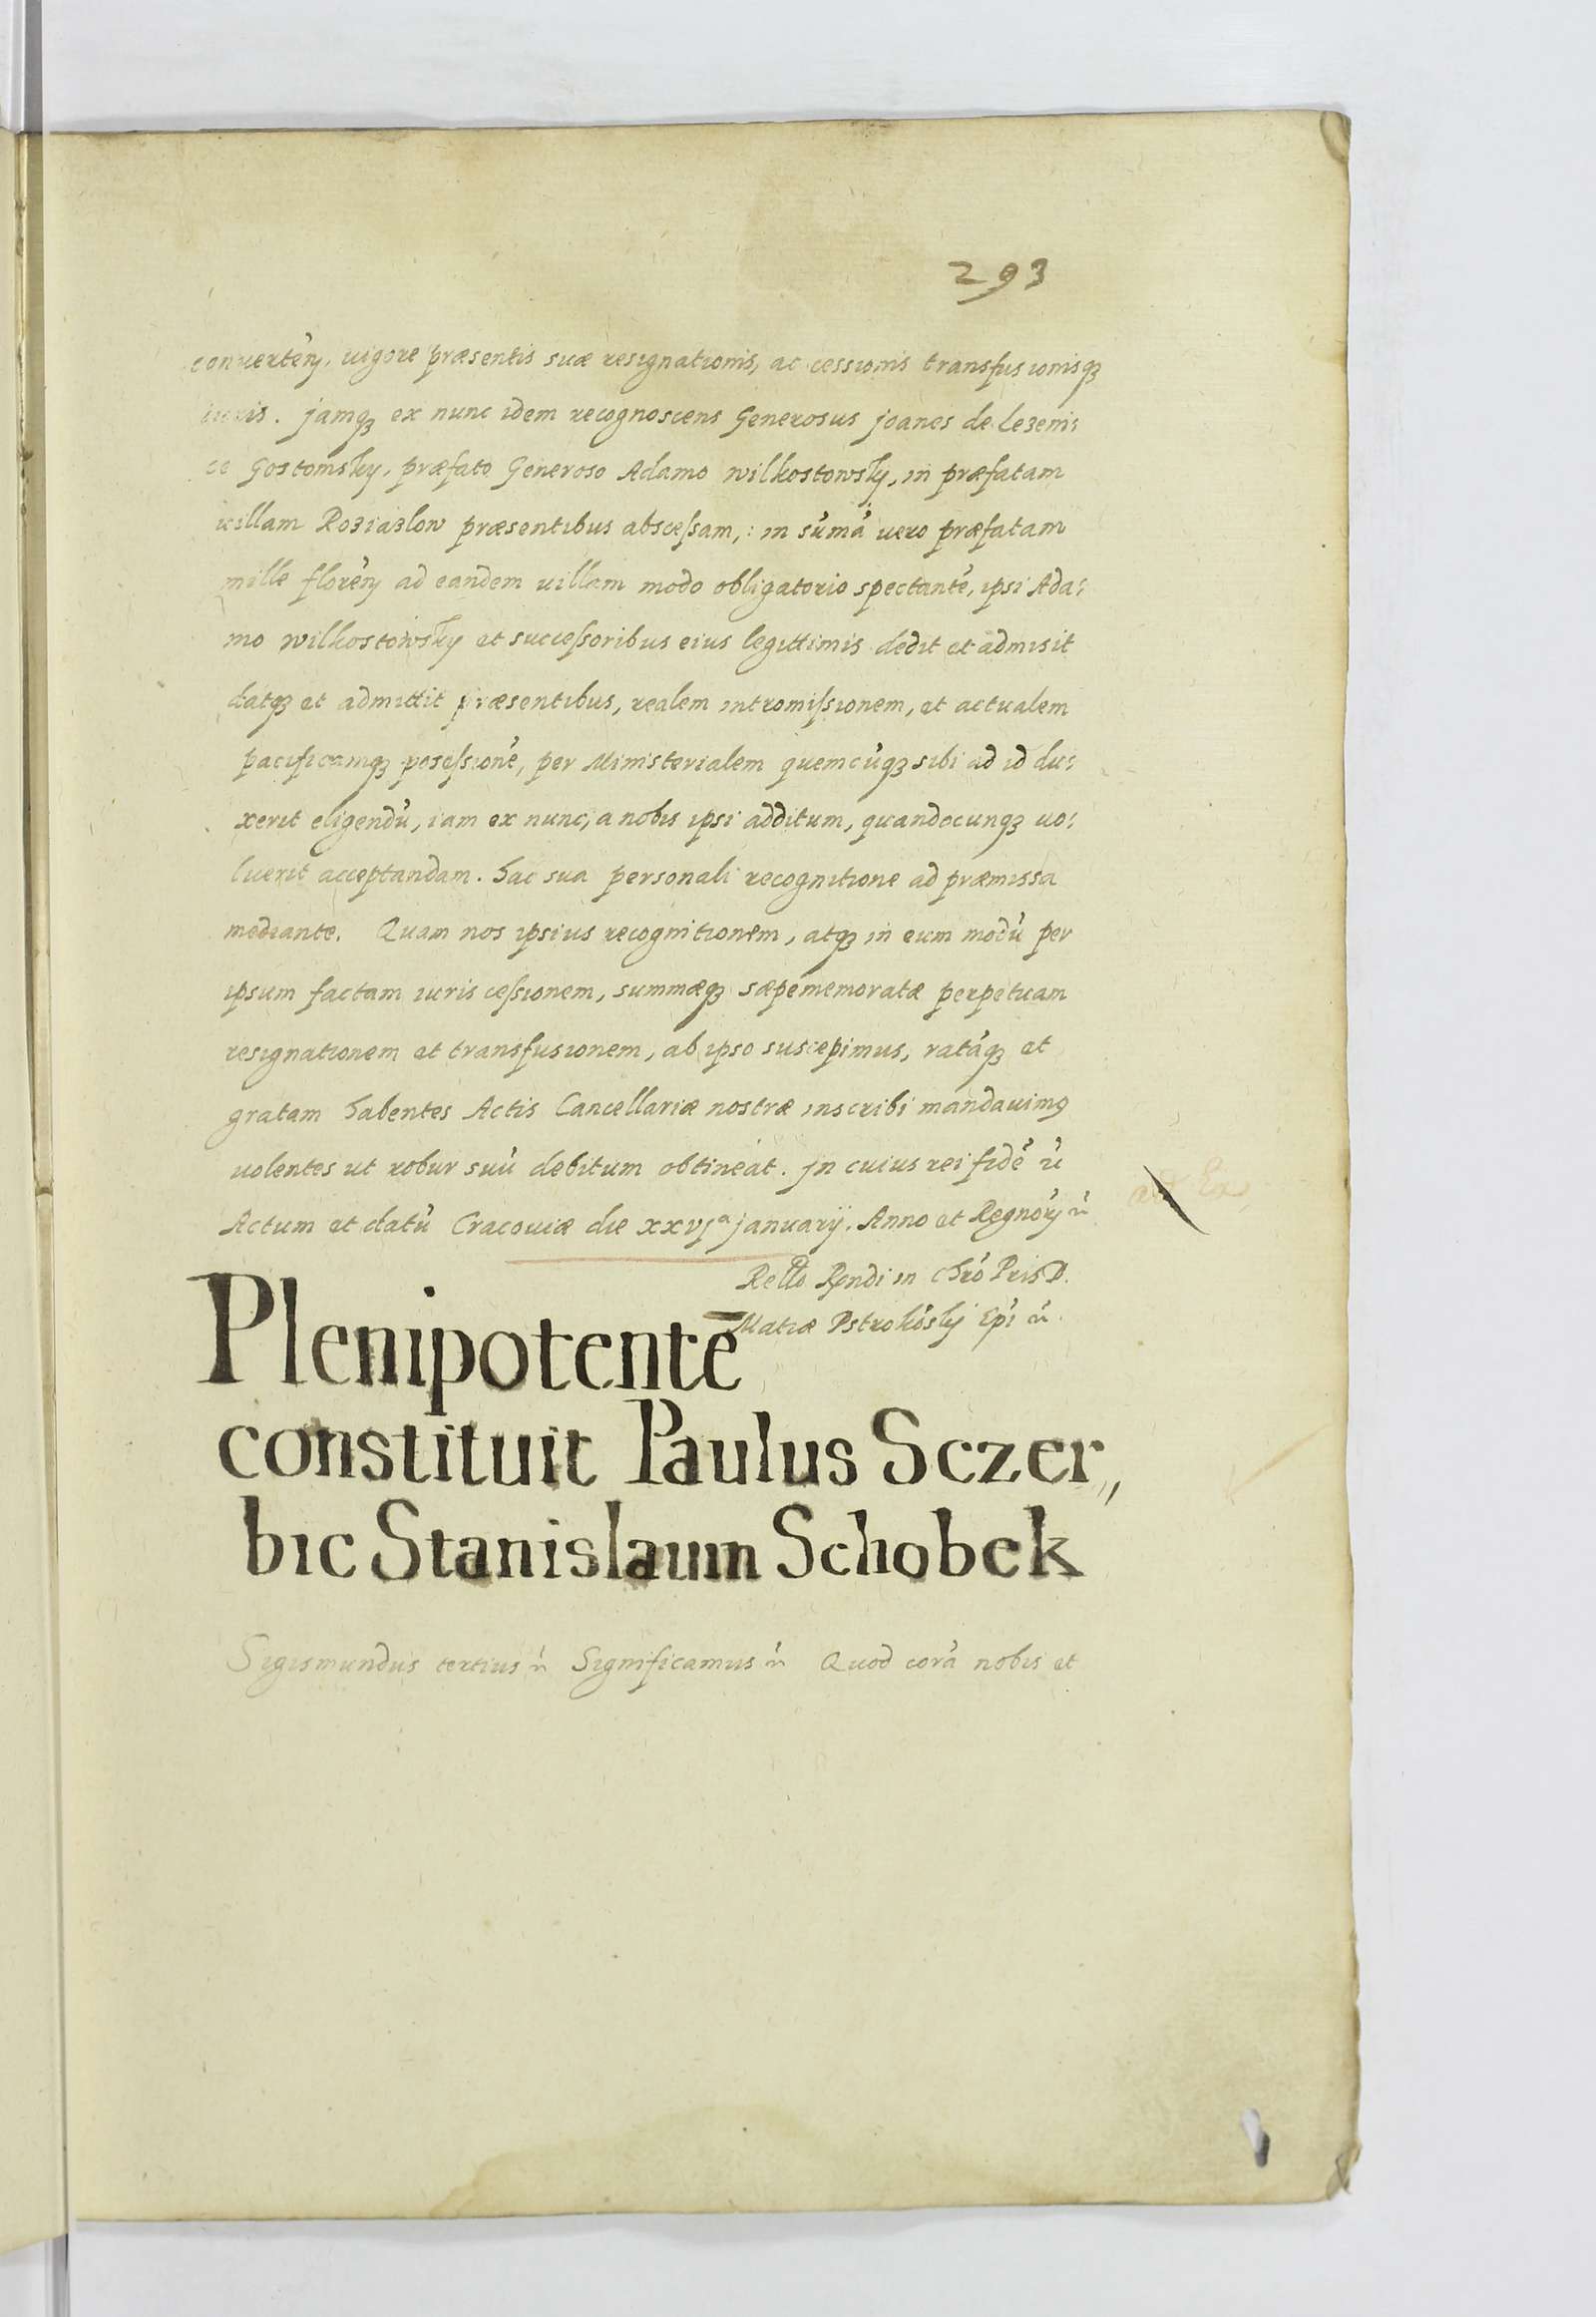 293
conuertẽñ. uigore præsentis suæ resignationis, ac cessionis transfusionisqꝫ
iuris. jamqꝫ ex nunc idem recognoscens Generosus joanes de Leʒeni:
ce Gostomsky, præfato Generoso Adamo Wilkostowsky, in præfatam
uillam Roʒiaʒlow præsentibus abscessam, : in sũmã uero præfatam
mille florẽñ ad eandem uillam modo obligatorio spectantẽ, ipsi Ada:
mo Wilkostowsky et successoribus eius legittimis dedit et admisit
datqꝫ et admittit præsentibus, realem intromissionem, et actualem
pacificamqꝫ posessionẽ, per Ministerialem quemcũqꝫ sibi ad id du:
xerit eligendũ, iam ex nunc, a nobis ipsi additum, quandocunqꝫ uo:
luerit acceptandam. hac sua personali recognitione ad præmissa
mediante. Quam nos ipsius recognitionem, atqꝫ in eum modũ per
ipsum factam iuris cessionem, summæqꝫ sæpememoratæ perpetuam
resignationem et transfusionem, ab ipso suscepimus, ratãqꝫ et
gratam habentes Actis Cancellariæ nostræ inscribi mandauimꝰ
uolentes ut robur suũ debitum obtineat. jn cuius rei fidẽ ñ
Actum et datũ Cracouiæ die xxvjᵃ januarij. Anno et Regnorꝫ ñ
Rello Rṇdi in Chrõ Pris D.
Matiæ Pstrokõsky Epĩ ñ.
Plenipotentẽ
constituit Paulus Sczer„
bic Stanislaum Schobek
Sigismundus tertius ñ Significamus ñ Quod corã nobis et